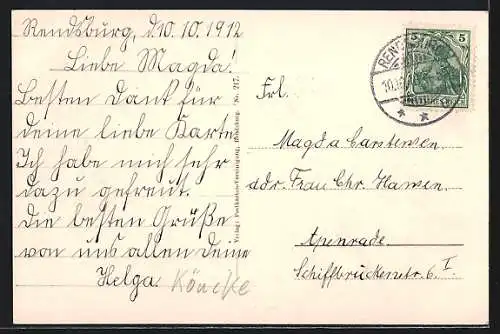 Rendsburg, d. 10. 10. 1912
Liebe Magda!
Besten Dank für
deine liebe Karte.
Ich habe mich sehr
dazu gefreut.
Die besten Grüße
von uns allen deine
Helga
Verlag: Postkarten-Vereinigung, Flensburg. No. 217.
5 5
Frl.
Magda Carstensen
adr. Frau Chr. Hansen
Apenrade.
Schiffbrückenstr. 6. I